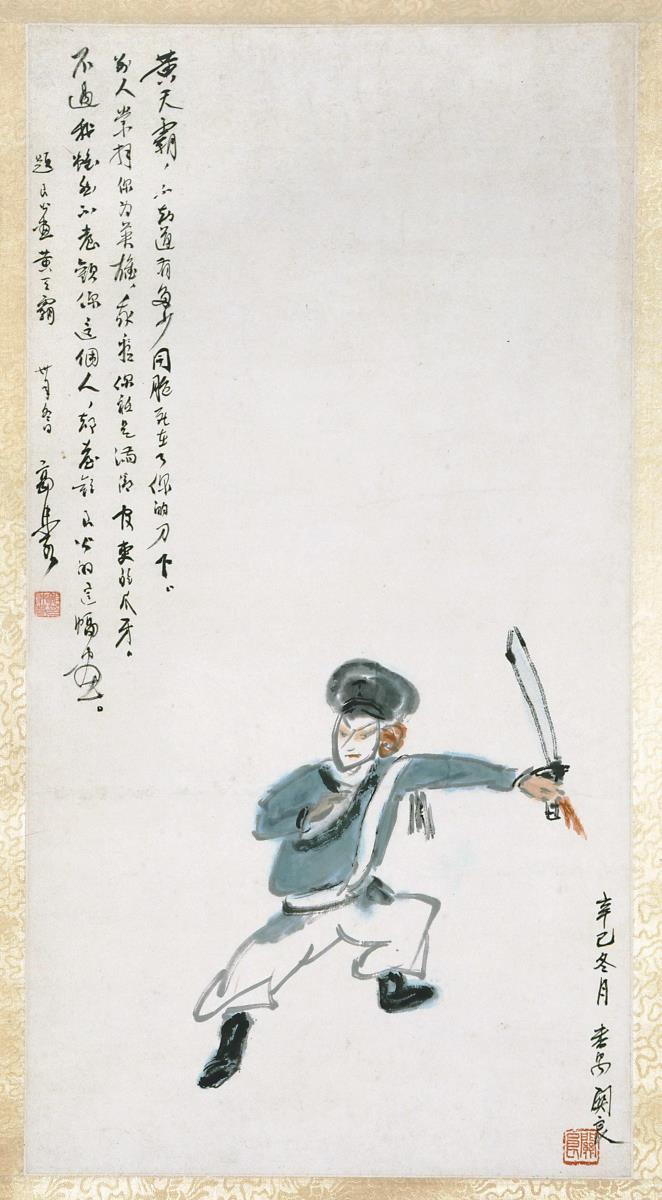 黃天霸，不知道有多少同胞死在了你的刀下。
別人常你为英雄，我看你祇是滿清吏的爪牙。
不過我雖然不喜歡你這個人，却喜歡良公的這幅畫。
題良公畫黃天霸 卅年冬日 高
辛巳冬月 番禺關良
關良